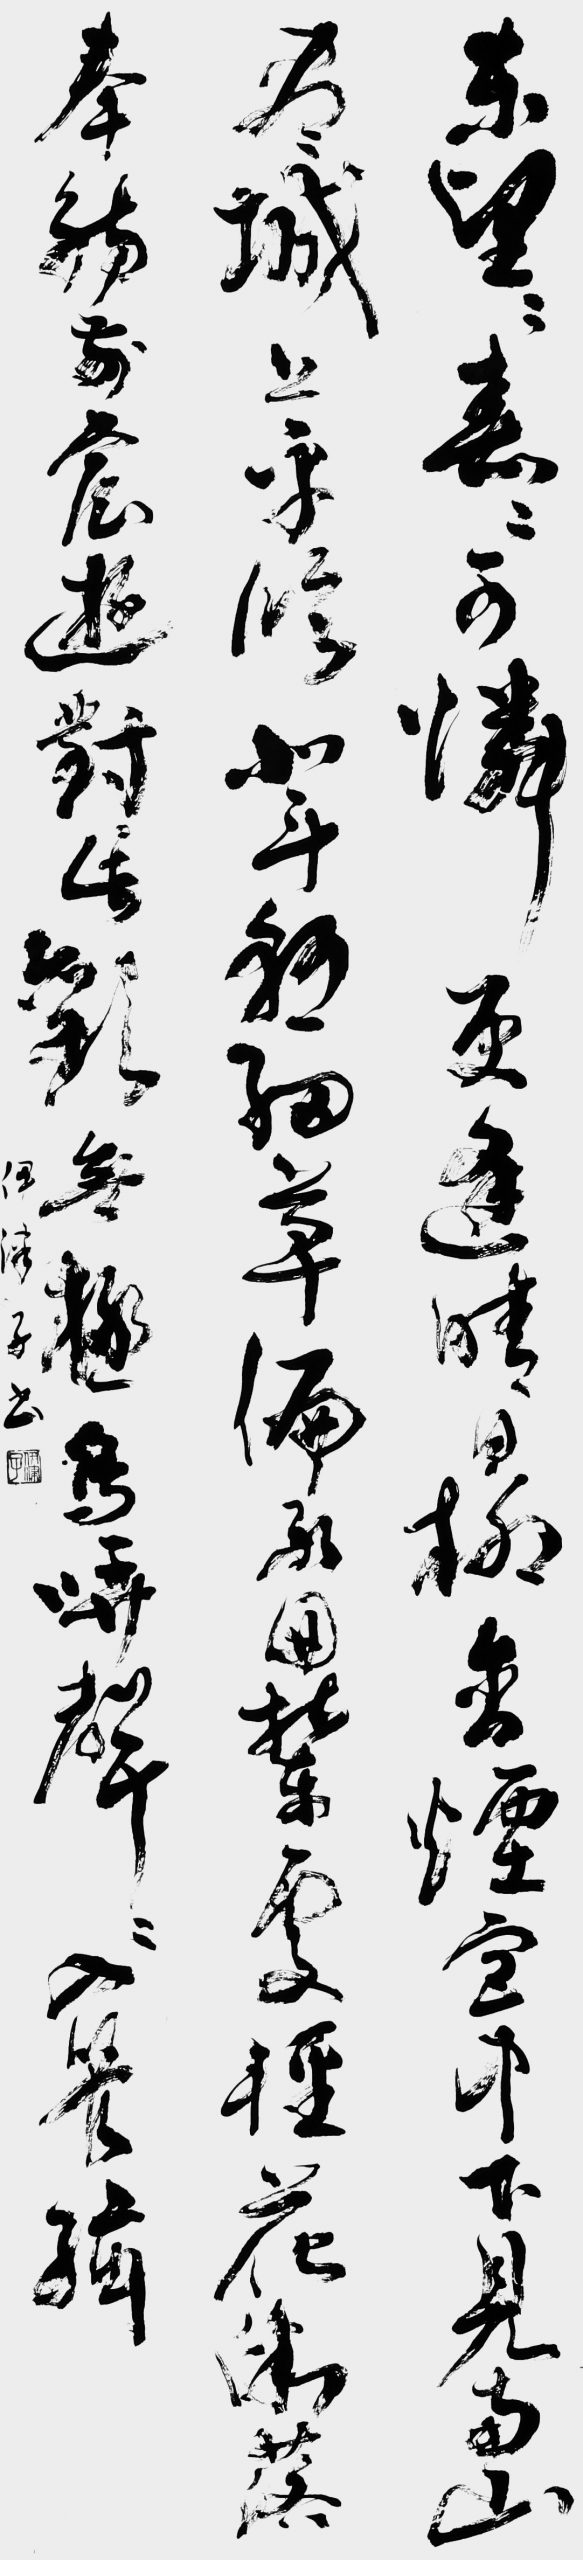 東望〻春〻可憐更逢晴日柳含煙宮中下見南山
盡城上平臨北斗懸細草偏承回輦處輕花微落
奉觴前宸遊對此歡無極鳥哢聲〻入管絃
子書